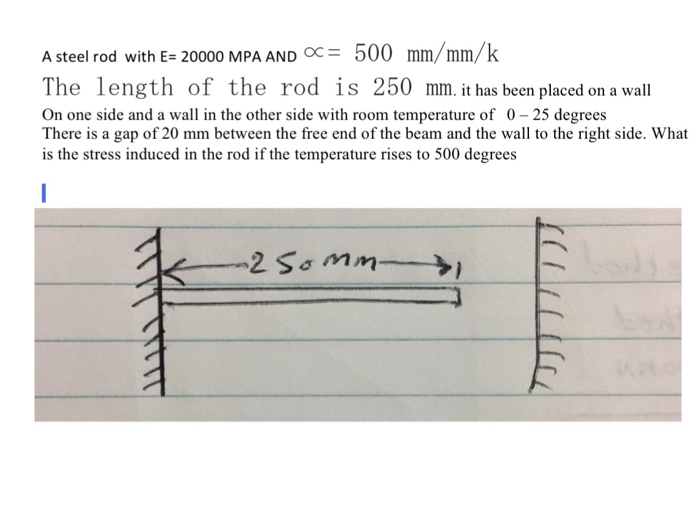 A steel rod with E= 20000 MPA AND ∝= 500 mm/mm/k
The length of the rod is 250 mm. it has been placed on a wall
On one side and a wall in the other side with room temperature of 0 – 25 degrees
There is a gap of 20 mm between the free end of the beam and the wall to the right side. What
is the stress induced in the rod if the temperature rises to 500 degrees
250mm